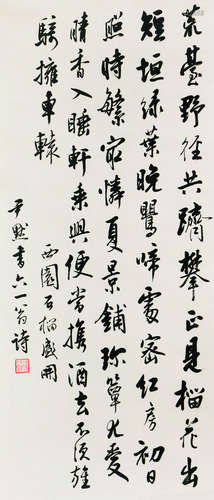 荒臺野徑共躋攀正見榴花出
短垣緑葉晚鶯啼處密紅房初日
照時繁最憐夏景鋪珍簟尤愛
晴香入睡軒乘興便當携酒去不須旌
騎擁車轅
西園石榴盛開
尹默書六一翁詩